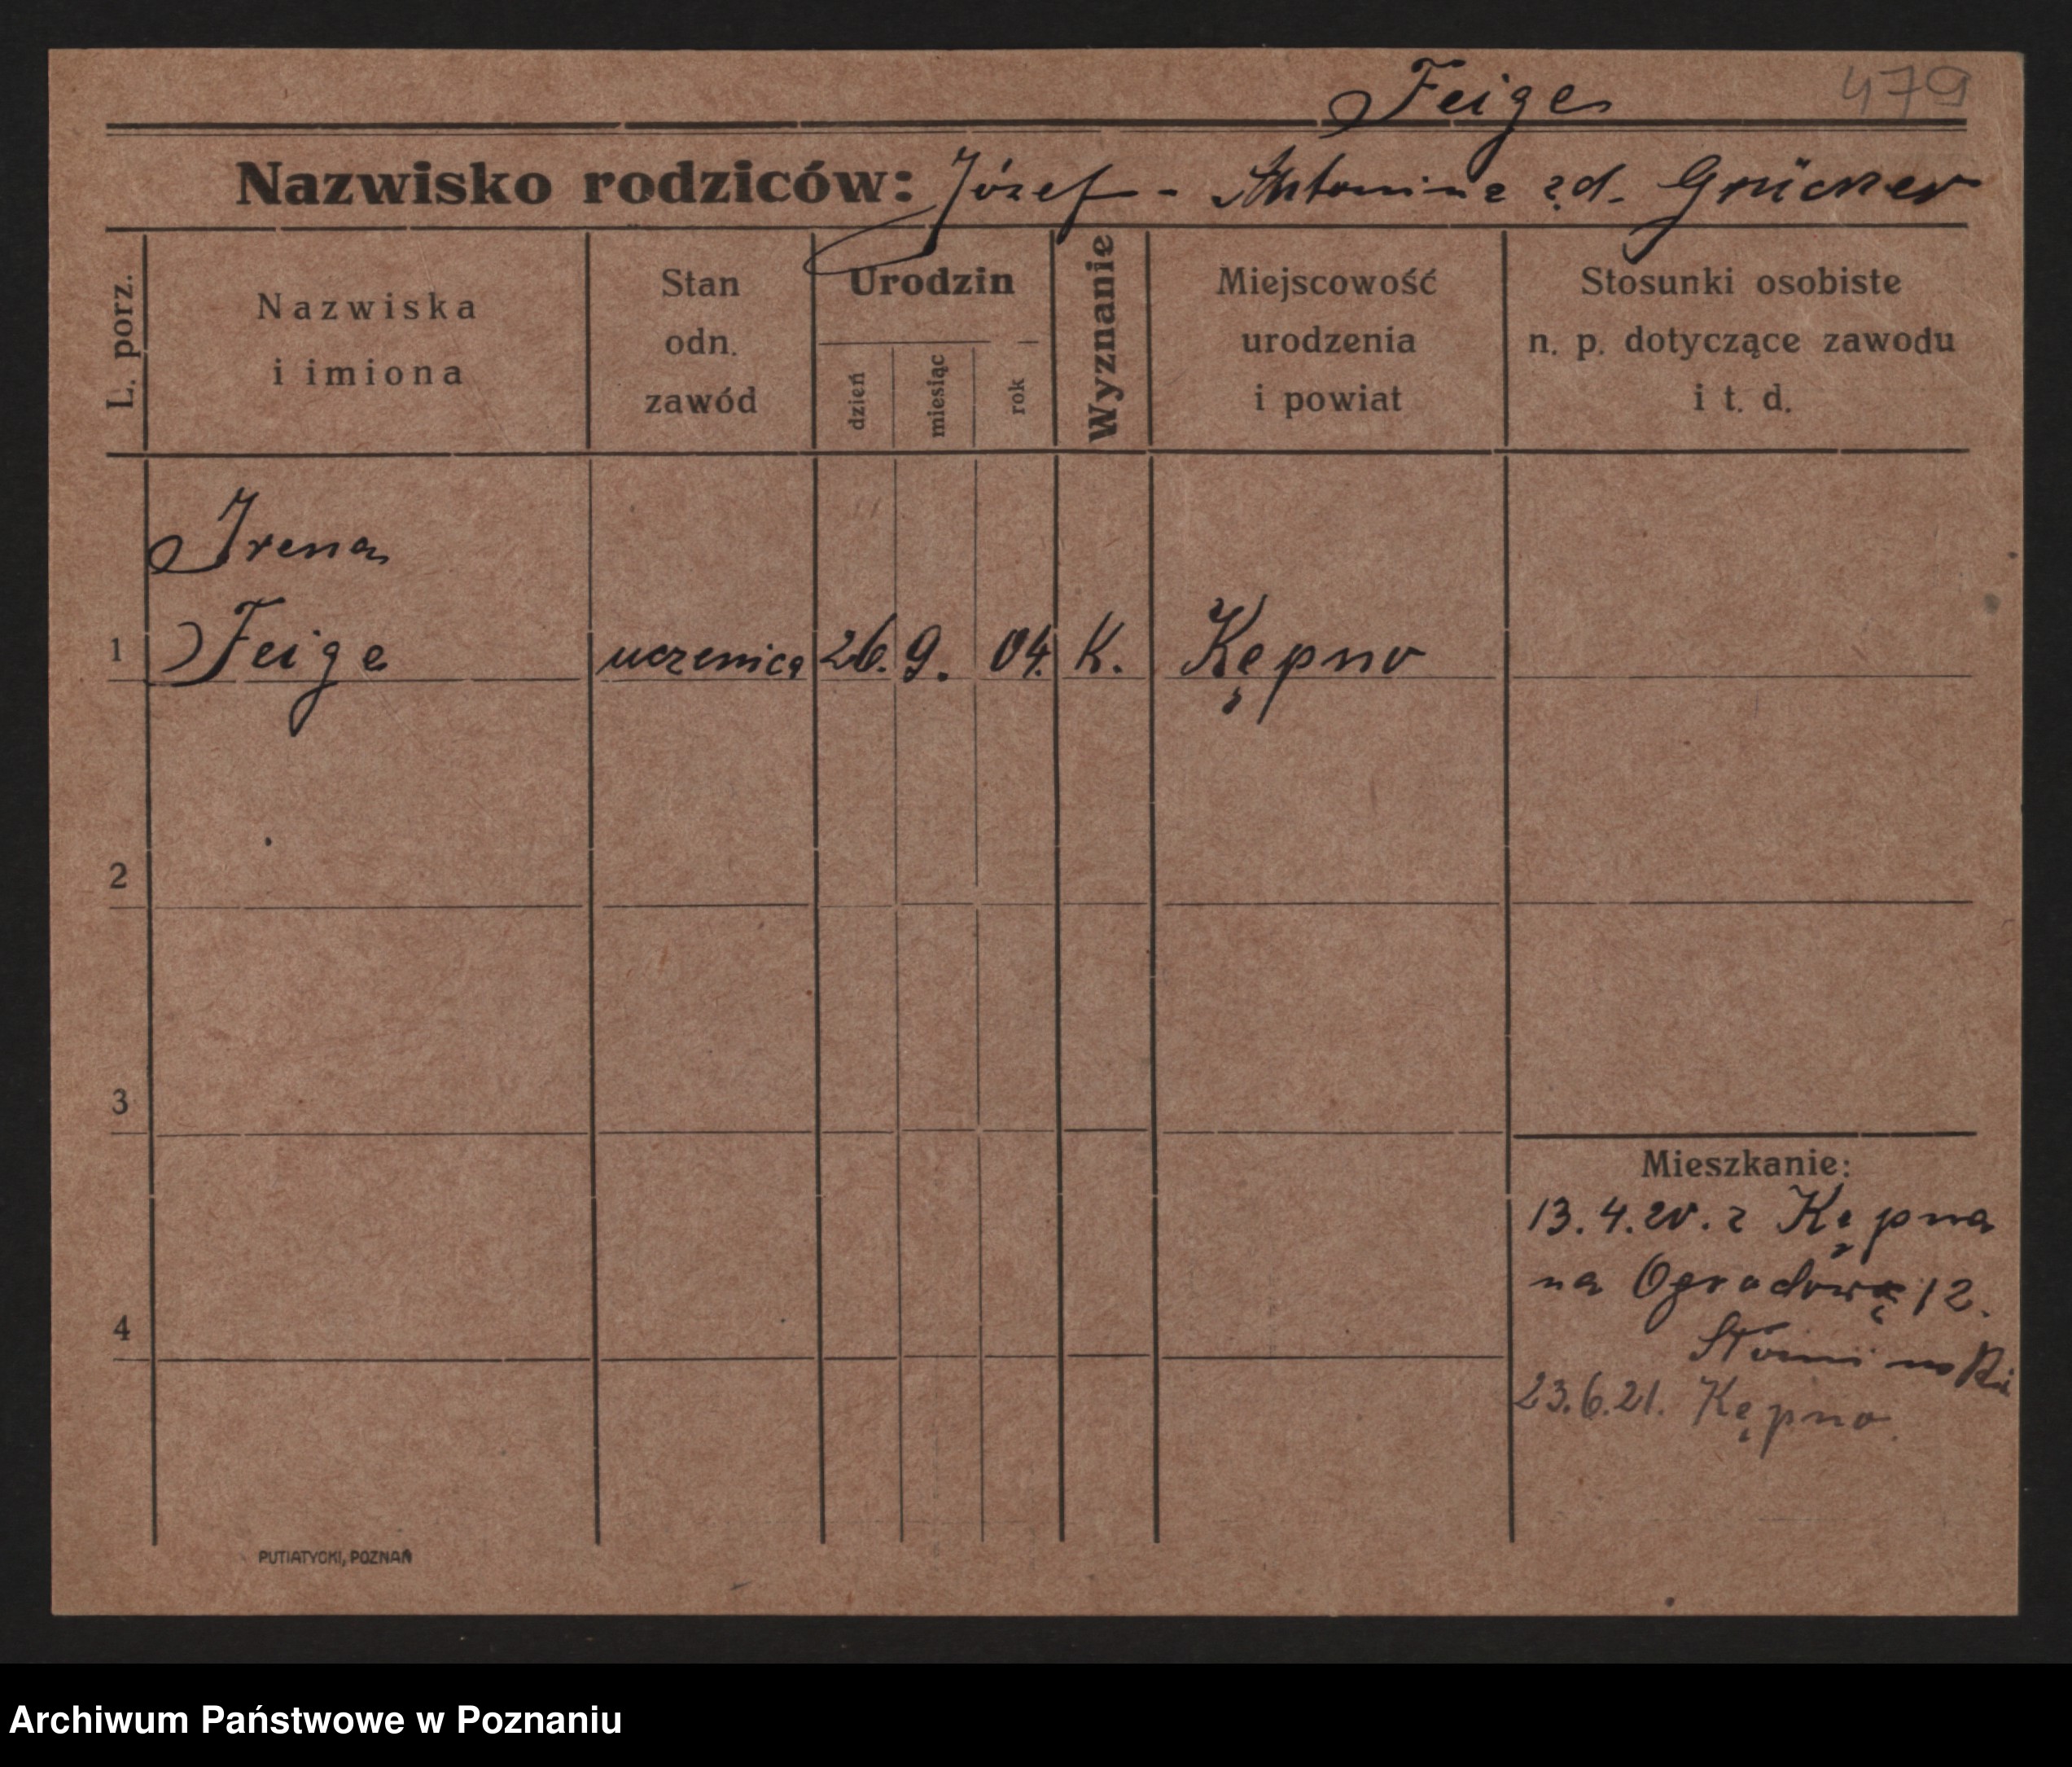 Feige 479
Nazwisko rodziców: Józef - Antonina z d. Grücner
L. porz.
Nazwiska
i imiona
Stan
odn.
zawód
Urodzin
dzień
miesiąc
rok
Wyznanie
Miejscowość
urodzenia
i powiat
Stosunki osobiste
n. p. dotyczące zawodu
i t. d.
Irena
1 Feige uczenica 26. 9. 04. K. Kępno
2
3
Mieszkanie:
13.4.20. z Kępna
na Ogrodową 12.
4
23.6.21. Kępno.
PUTIATYCKI, POZNAŃ
Archiwum Państwowe w Poznaniu